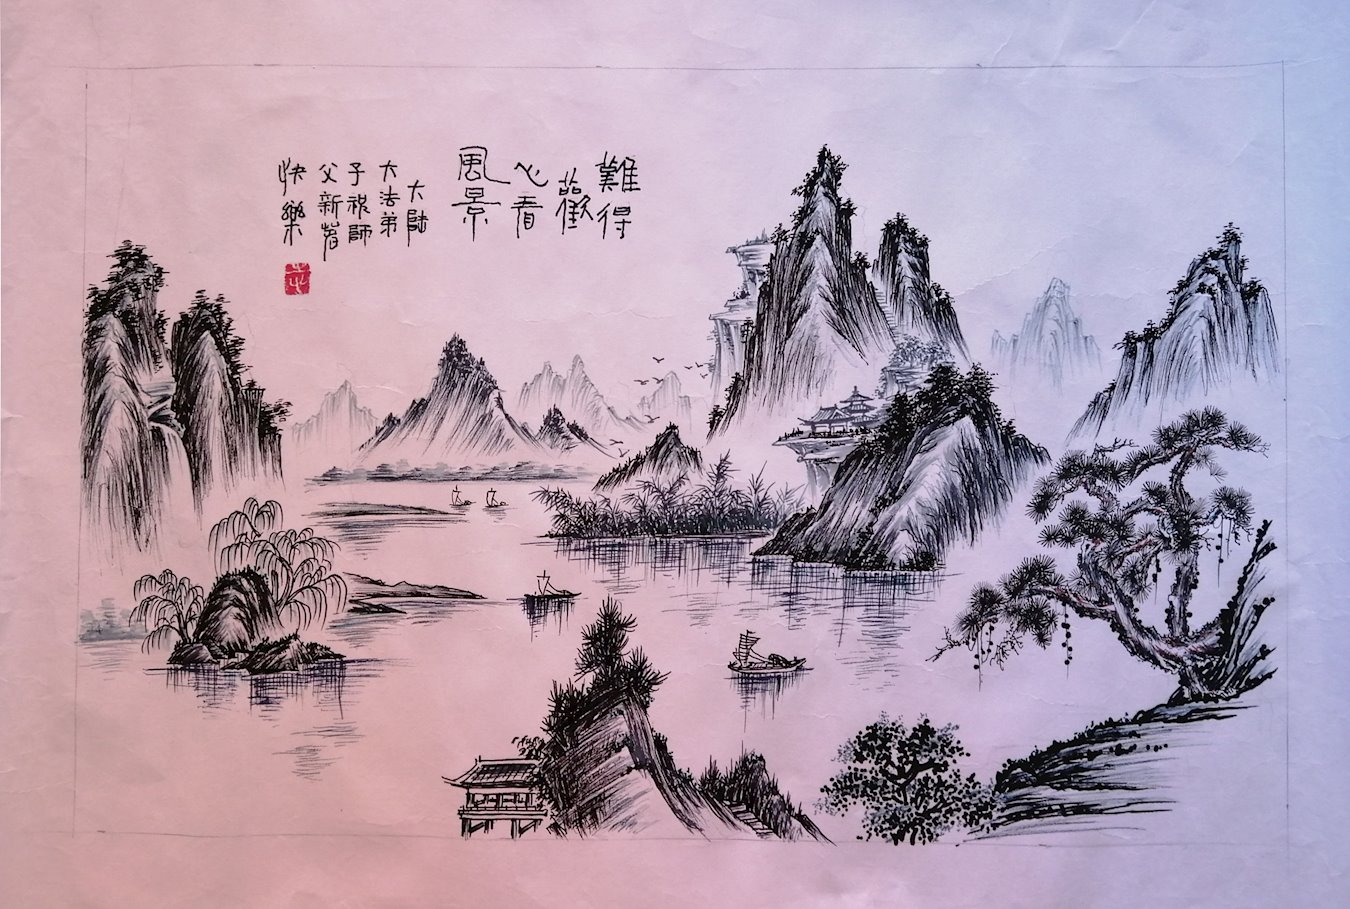 難得
歡
心看
風景
大陸
大法弟
子祝師
父新春
快樂